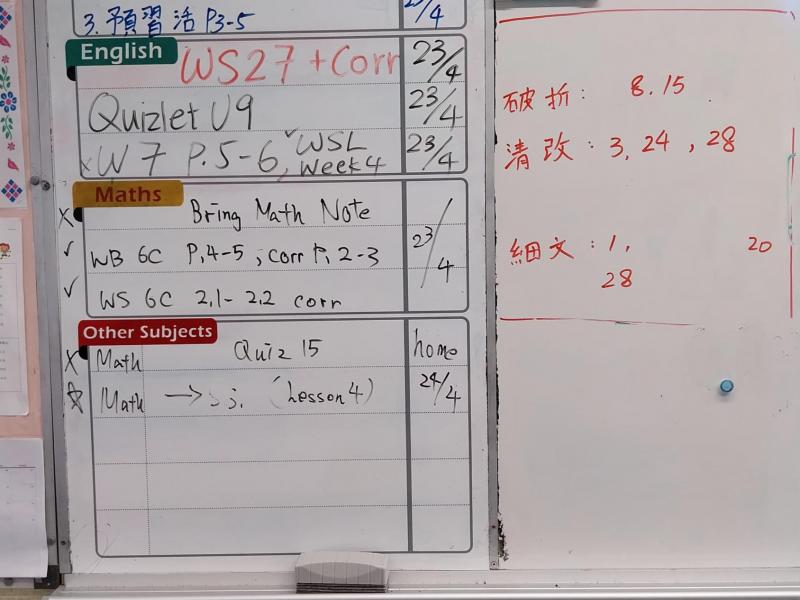 3. 預習活 P3-5 /4
English
WS27 + Corr 23/4
Quizlet U9 23/4
x W 7 P.5-6, ✓ WSL Week 4 23/4
Maths
x Bring Math Note
✓ WB 6C P,4-5 ; corr P, 2-3 23/4
✓ WS 6C 2,1- 2,2 corr
Other Subjects
x Math Quiz 15 home
☆ Math → (Lesson 4) 24/4
破折: 8.15
清改: 3, 24, 28
細文: 1, 20
28